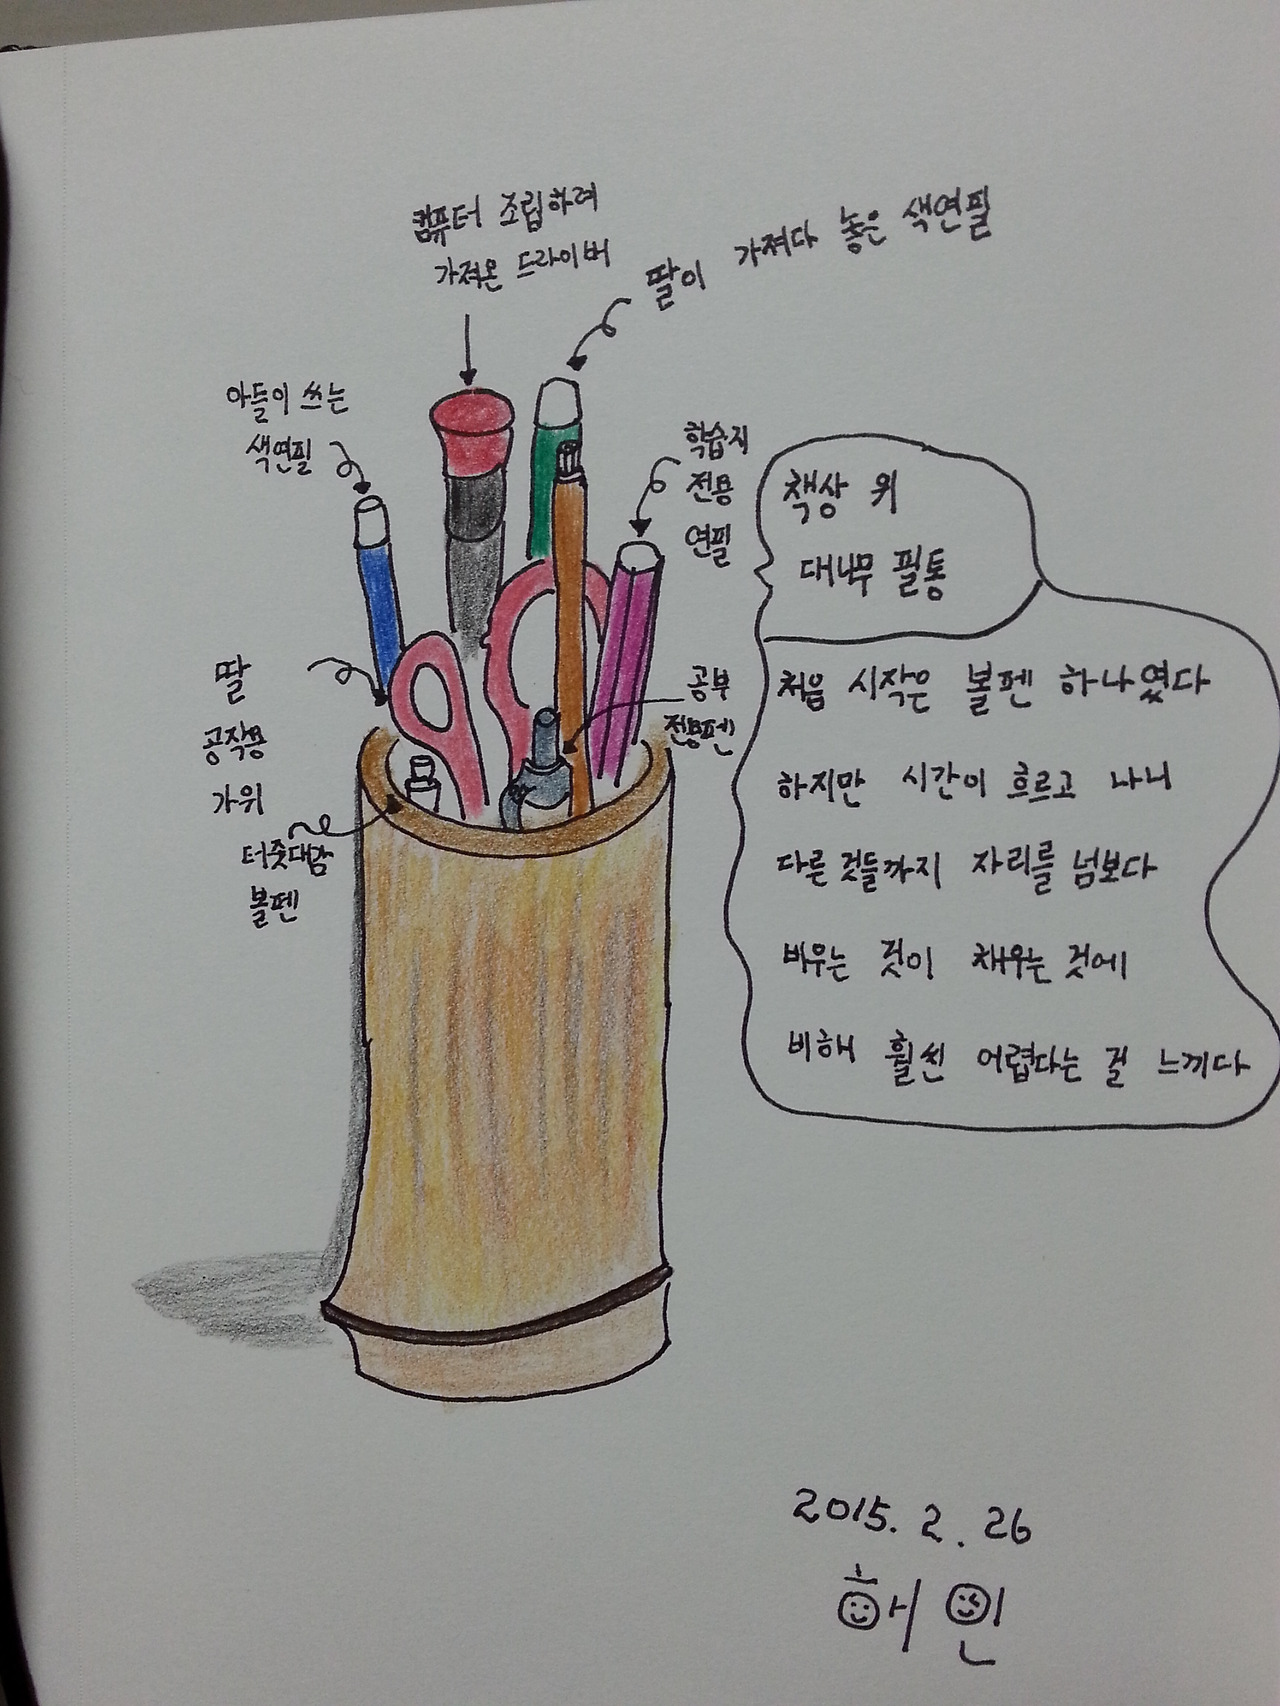 컴퓨터 조립하려
가져온 드라이버
딸이 가져다 놓은 색연필
아들이 쓰는
색연필
학습지
전용
연필
딸
공작용
가위
공부
전용펜
터줏대감
볼펜
책상 위
대나무 필통
처음 시작은 볼펜 하나였다
하지만 시간이 흐르고 나니
다른 것들까지 자리를 넘보다
비우는 것이 채우는 것에
비해 훨씬 어렵다는 걸 느끼다
2015. 2. 26
해인